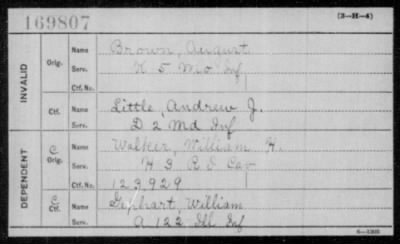 169807
(3-H-4)
INVALID
Orig.
Name Brown, August
Serv. K 5 Mo Inf
Ctf. No.
Ctf.
Name Little, Andrew J.
Serv. D 2 Md Inf
DEPENDENT
C
Orig.
Name Walker, William H.
Serv. H 3 R I Cav
Ctf. No. 123,929
C
Ctf.
Name Gephart, William
Serv. A 122 Ill Inf